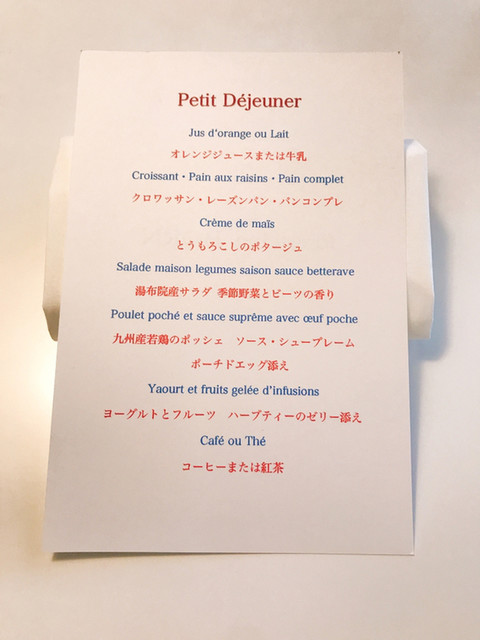 Petit Déjeuner
Jus d'orange ou Lait
オレンジジュースまたは牛乳
Croissant・Pain aux raisins・Pain complet
クロワッサン・レーズンパン・パンコンプレ
Crème de maïs
とうもろこしのポタージュ
Salade maison legumes saison sauce betterave
湯布院産サラダ 季節野菜とビーツの香り
Poulet poché et sauce suprême avec œuf poche
九州産若鶏のポッシェ　ソース・シュープレーム
ポーチドエッグ添え
Yaourt et fruits gelée d'infusions
ヨーグルトとフルーツ　ハーブティーのゼリー添え
Café ou Thé
コーヒーまたは紅茶